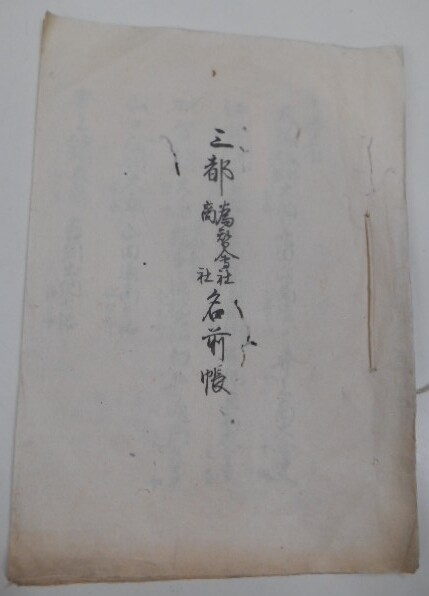 三都
為替会社
商社
名前帳